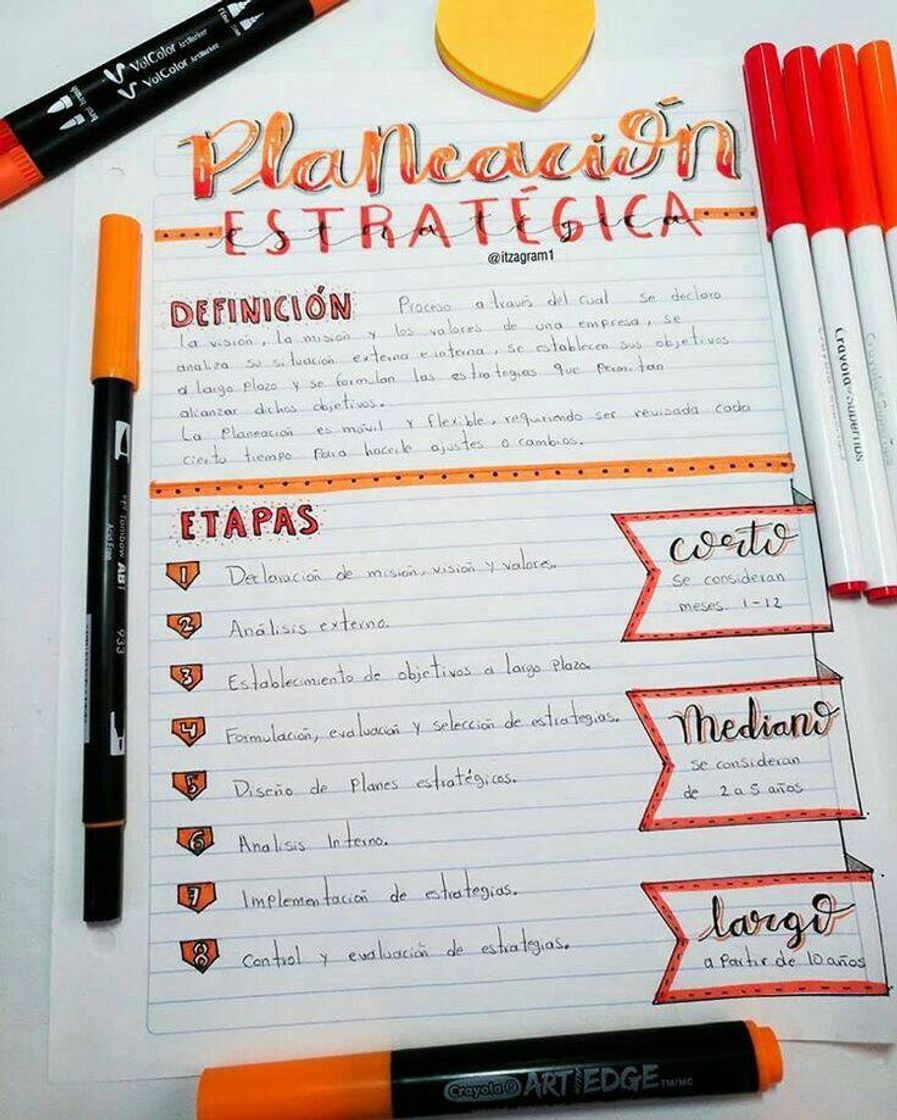 VolColor ArtMarker
VolColor ArtMarker
Brush
Fine
Planeación
ESTRATÉGICA
estratégica
@itzagram1
DEFINICIÓN Proceso a través del cual se declara
la visión, la misión y los valores de una empresa, se
analiza su situación externa e interna, se establecen sus objetivos
a largo plazo y se formulan las estrategias que permitan
alcanzar dichos objetivos.
La Planeación es móvil y flexible, requiriendo ser revisada cada
cierto tiempo para hacerle ajustes o cambios.
ETAPAS
1 Declaración de misión, visión y valores.
2 Análisis externo.
3 Establecimiento de objetivos a largo plazo.
4 Formulación, evaluación y selección de estrategias.
5 Diseño de Planes estratégicos.
6 Analisis Interno.
7 Implementación de estrategias.
8 Control y evaluación de estrategias.
corto
Se consideran
meses. 1-12
Mediano
se consideran
de 2 a 5 años
largo
a Partir de 10 años
Tombow ABT 933
Crayola Supertips
Crayola® ART EDGE TM/MC